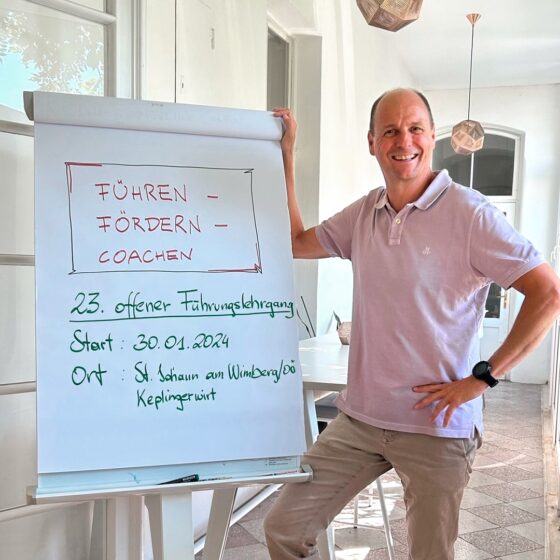 FÜHREN –
FÖRDERN –
COACHEN
23. offener Führungslehrgang
Start : 30.01.2024
Ort : St. Johann am Wimberg/OÖ
Keplingerwirt